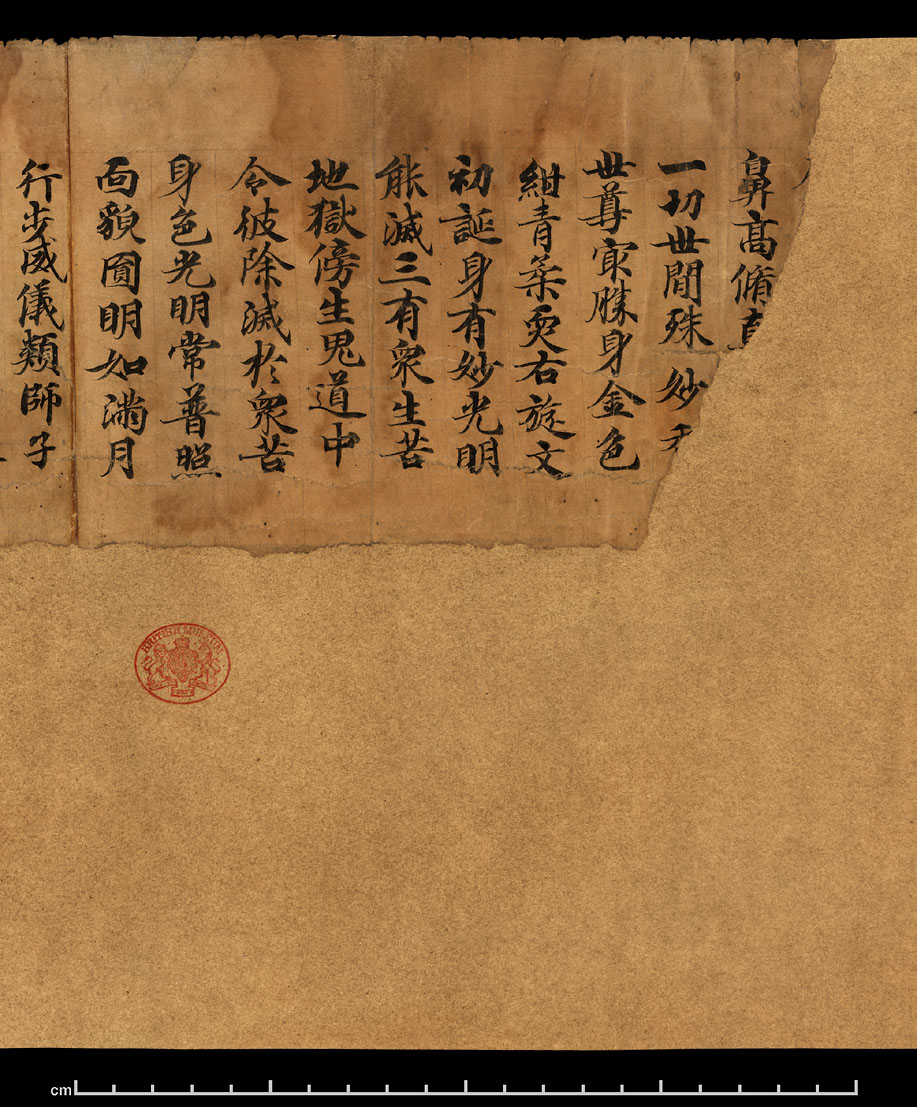 鼻高脩直
一切世間殊妙香
世尊冣勝身金色
紺青柔耎右旋文
初誕身有妙光明
能滅三有衆生苦
地獄傍生鬼道中
令彼除滅於衆苦
身色光明常普照
面貌圎明如滿月
行步威儀類師子
BRITISH MUSEUM
cm